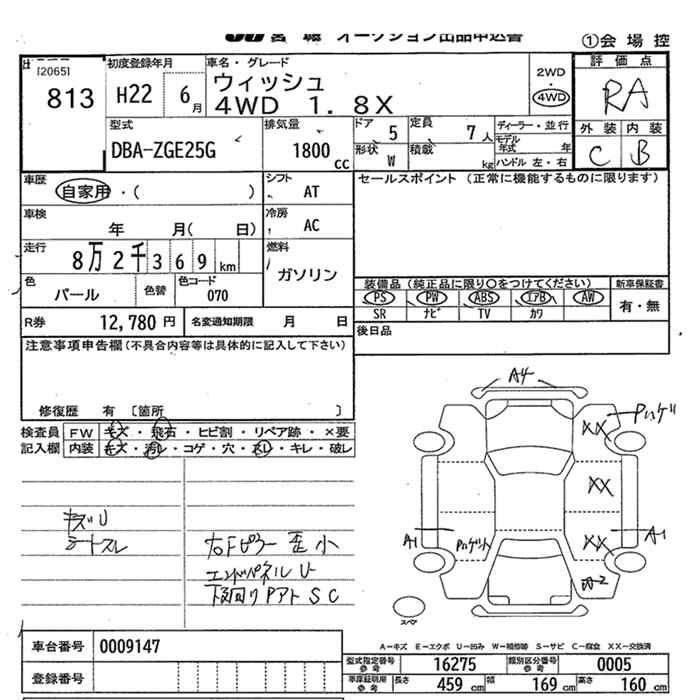 JU 宮城 オークション出品申込書
①会場控
[2065]
813
初度登録年月
H22 6月
車名・グレード
ウィッシュ
4WD 1.8X
2WD
・
4WD
評価点
RA
外装 内装
C B
型式
DBA-ZGE25G
排気量
1800 cc
ドア 5
定員 7人
形状 W
積載 kg
ディーラー・並行
モデル年式 年
ハンドル 左・右
車歴
自家用・( )
シフト AT
車検
年 月( 日)
冷房 AC
走行
8万2千369km
燃料
ガソリン
色
パール
色替
色コード
070
R券 12,780円
名変通知期限 月 日
セールスポイント (正常に機能するものに限ります)
装備品(純正品に限り○をつけてください)
新車保証書
PS PW ABS エアB AW
有・無
SR ナビ TV カワ
後日品
注意事項申告欄(不具合内容等は具体的に記入して下さい)
修復歴 有 〔箇所 〕
検査員記入欄
FW キズ・飛石・ヒビ割・リペア跡・×要
内装 キズ・汚レ・コゲ・穴・スレ・キレ・破レ
キズU
シートスレ
右Fピラー歪小
エンドパネルU
下回りPアトSC
A4
Pハゲ
XX
XX
XX
A1
A1
Pハゲ
スペア
A-キズ E-エクボ U-凹み W-補修跡 S-サビ C-腐食 XX-交換済
車台番号 0009147
登録番号
型式指定番号参考 16275
類別区分番号参考 0005
車庫証明用参考 長さ 459cm 幅 169cm 高さ 160cm